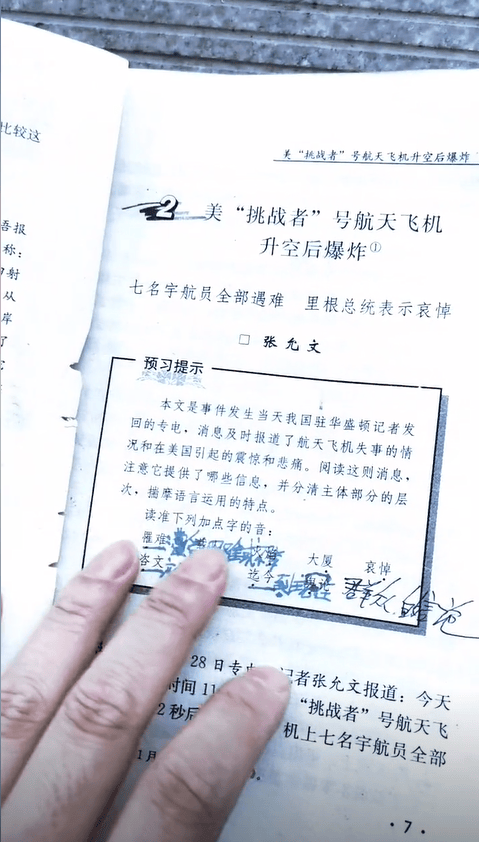 比较这
美“挑战者”号航天飞机升空后爆炸
吾报
称：
射
从
岸
了
它
2 美“挑战者”号航天飞机
升空后爆炸①
七名宇航员全部遇难 里根总统表示哀悼
□ 张允文
预习提示
本文是事件发生当天我国驻华盛顿记者发
回的专电，消息及时报道了航天飞机失事的情
况和在美国引起的震惊和悲痛。阅读这则消息，
注意它提供了哪些信息，并分清主体部分的层
次，揣摩语言运用的特点。
读准下列加点字的音：
罹难 大厦 哀悼
咨文 迄今
28日专电 记者张允文报道：今天
时间11 “挑战者”号航天飞
2秒后 机上七名宇航员全部
1月
·7·